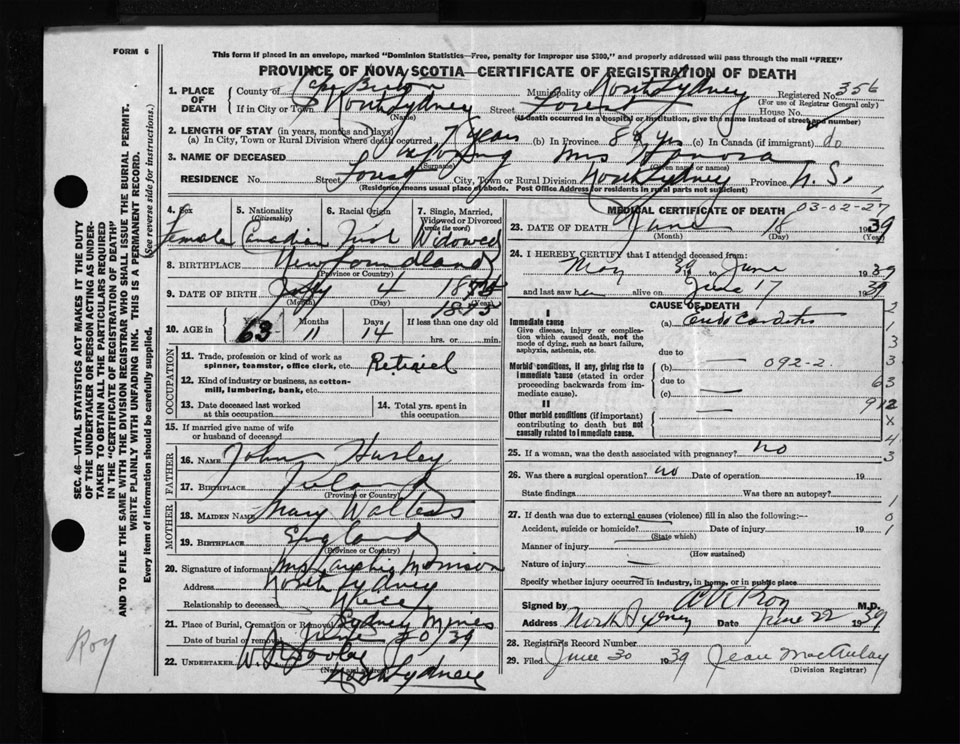 FORM 6
This form if placed in an envelope, marked "Dominion Statistics—Free, penalty for improper use $300," and properly addressed will pass through the mail "FREE"
PROVINCE OF NOVA SCOTIA—CERTIFICATE OF REGISTRATION OF DEATH
SEC. 46—VITAL STATISTICS ACT MAKES IT THE DUTY
OF THE UNDERTAKER OR PERSON ACTING AS UNDER-
TAKER TO OBTAIN ALL THE PARTICULARS REQUIRED
IN THE "CERTIFICATE OF REGISTRATION OF DEATH"
AND TO FILE THE SAME WITH THE DIVISION REGISTRAR WHO SHALL ISSUE THE BURIAL PERMIT.
WRITE PLAINLY WITH UNFADING INK. THIS IS A PERMANENT RECORD.
Every item of information should be carefully supplied. (See reverse side for instructions.)
Roy
1. PLACE OF DEATH County of Cape Breton Municipality of North Sydney Registered No. 356
(For use of Registrar General only)
If in City or Town North Sydney Street Forest House No.
(Name) (If death occurred in a hospital or institution, give the name instead of street and number)
2. LENGTH OF STAY (in years, months and days)
(a) In City, Town or Rural Division where death occurred years (b) In Province yrs (c) In Canada (if immigrant) do
3. NAME OF DECEASED Mrs
(Surname) (Given name or names)
RESIDENCE No. Street Forest City, Town or Rural Division North Sydney Province N.S.
(Residence means usual place of abode. Post Office Address for residents in rural parts not sufficient)
4. Sex Female
5. Nationality (Citizenship) Canadian
6. Racial Origin Irish
7. Single, Married, Widowed or Divorced (write the word) Widowed
8. BIRTHPLACE Newfoundland
(Province or Country)
9. DATE OF BIRTH July 4 1875
(Month) (Day) (Year)
10. AGE in Years 63 Months 11 Days 14 If less than one day old
hrs. or min.
OCCUPATION
11. Trade, profession or kind of work as spinner, teamster, office clerk, etc. Retired
12. Kind of industry or business, as cotton-mill, lumbering, bank, etc.
13. Date deceased last worked at this occupation
14. Total yrs. spent in this occupation
15. If married give name of wife or husband of deceased
FATHER
16. NAME John Hurley
17. BIRTHPLACE Ireland
(Province or Country)
MOTHER
18. MAIDEN NAME Mary Walters
19. BIRTHPLACE England
(Province or Country)
20. Signature of informant Mrs Morrison
Address North Sydney
Relationship to deceased Niece
21. Place of Burial, Cremation or Removal Sydney Mines
Date of burial or removal June 20 39
22. UNDERTAKER W.
(Name and Address)
North Sydney
MEDICAL CERTIFICATE OF DEATH 03-02-27
23. DATE OF DEATH June 18 1939
(Month) (Day) (Year)
24. I HEREBY CERTIFY that I attended deceased from:
May 39 to June 1939
and last saw her alive on June 17 1939
CAUSE OF DEATH
I
Immediate cause
Give disease, injury or complication which caused death, not the mode of dying, such as heart failure, asphyxia, asthenia, etc.
(a) Endocarditis
due to
Morbid conditions, if any, giving rise to immediate cause (stated in order proceeding backwards from immediate cause).
(b) 092-2
due to
(c)
II
Other morbid conditions (if important) contributing to death but not causally related to immediate cause.
2
1
3
3
63
912
x
4
3
25. If a woman, was the death associated with pregnancy? no
26. Was there a surgical operation? no Date of operation 19
State findings Was there an autopsy?
27. If death was due to external causes (violence) fill in also the following:—
Accident, suicide or homicide? Date of injury 19
(State which)
Manner of injury
(How sustained)
Nature of injury
Specify whether injury occurred in industry, in home, or in public place
1
0
1
Signed by Roy M.D.
Address North Sydney Date June 22 1939
28. Registrar's Record Number
29. Filed June 30 1939 Jean MacAulay
(Division Registrar)